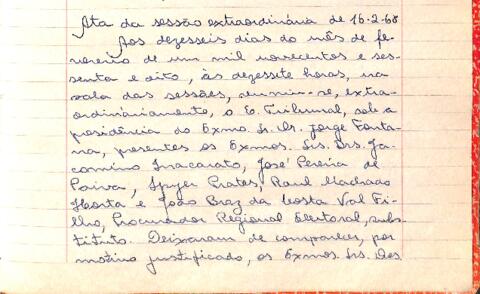 Ata da sessão extraordinária de 16-2-68
Aos dezesseis dias do mês de fe-
vereiro de um mil novecentos e ses-
senta e oito, às dezessete horas, na
sala das sessões, reuniu-se, extra-
ordinàriamente, o E. Tribunal, sob a
presidência do Exmo. Sr. Dr. Jorge Fonta-
na, presentes os Exmos. Srs. Drs. Ja-
comino Inacarato, José Pereira de
Paiva, Spyer Prates, Raul Machado
Horta e João Braz da Costa Val Fi-
lho, Procurador Regional Eleitoral, subs-
tituto. Deixaram de comparecer, por
motivo justificado, os Exmos Srs. Des